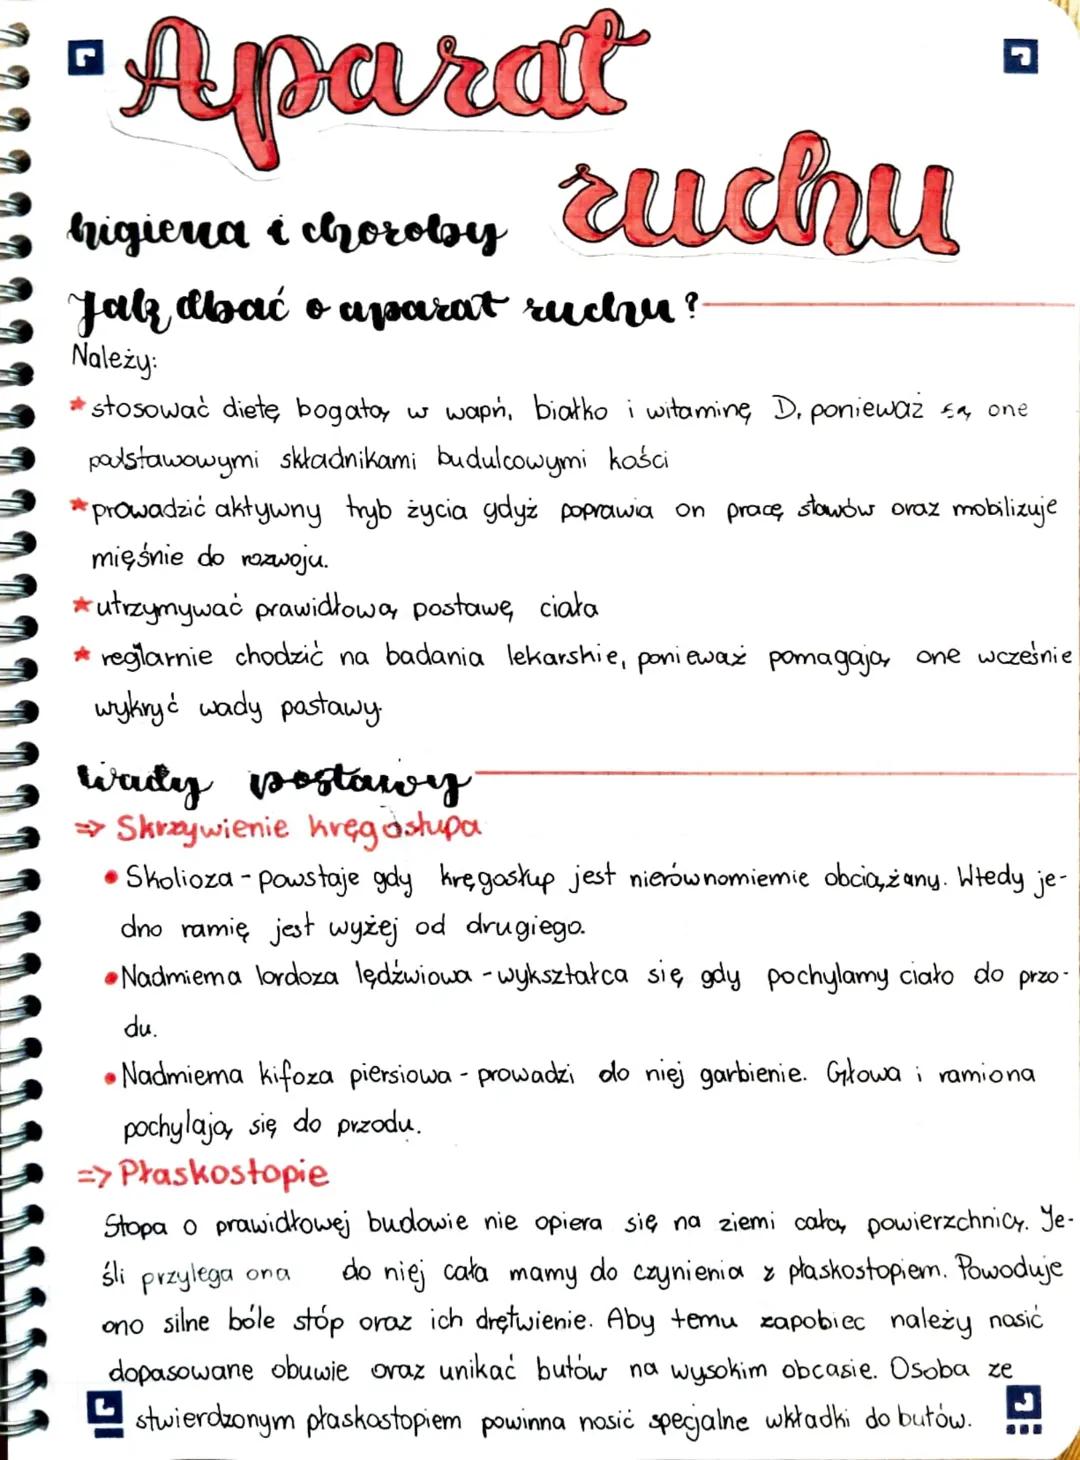 Aparat
ruchu
higiena i choroby
Jak dbać o aparat ruchu?
Należy:
* stosować dietę bogatą w wapń, białko i witaminę D, ponieważ są one
podstawowymi składnikami budulcowymi kości
* prowadzić aktywny tryb życia gdyż poprawia on pracę stawów oraz mobilizuje
mięśnie do rozwoju.
* utrzymywać prawidłową postawę ciała
* reglarnie chodzić na badania lekarskie, ponieważ pomagają one wcześnie
wykryć wady postawy.
Wady postawy
=> Skrzywienie kręgosłupa
• Skolioza - powstaje gdy kręgosłup jest nierównomiernie obciążany. Wtedy je-
dno ramię jest wyżej od drugiego.
• Nadmierna lordoza lędźwiowa - wykształca się gdy pochylamy ciało do przo-
du.
• Nadmierna kifoza piersiowa - prowadzi do niej garbienie. Głowa i ramiona
pochylają się do przodu.
=> Płaskostopie
Stopa o prawidłowej budowie nie opiera się na ziemi całą powierzchnią. Je-
śli przylega ona do niej cała mamy do czynienia z płaskostopiem. Powoduje
ono silne bóle stóp oraz ich drętwienie. Aby temu zapobiec należy nosić
dopasowane obuwie oraz unikać butów na wysokim obcasie. Osoba ze
stwierdzonym płaskostopiem powinna nosić specjalne wkładki do butów.